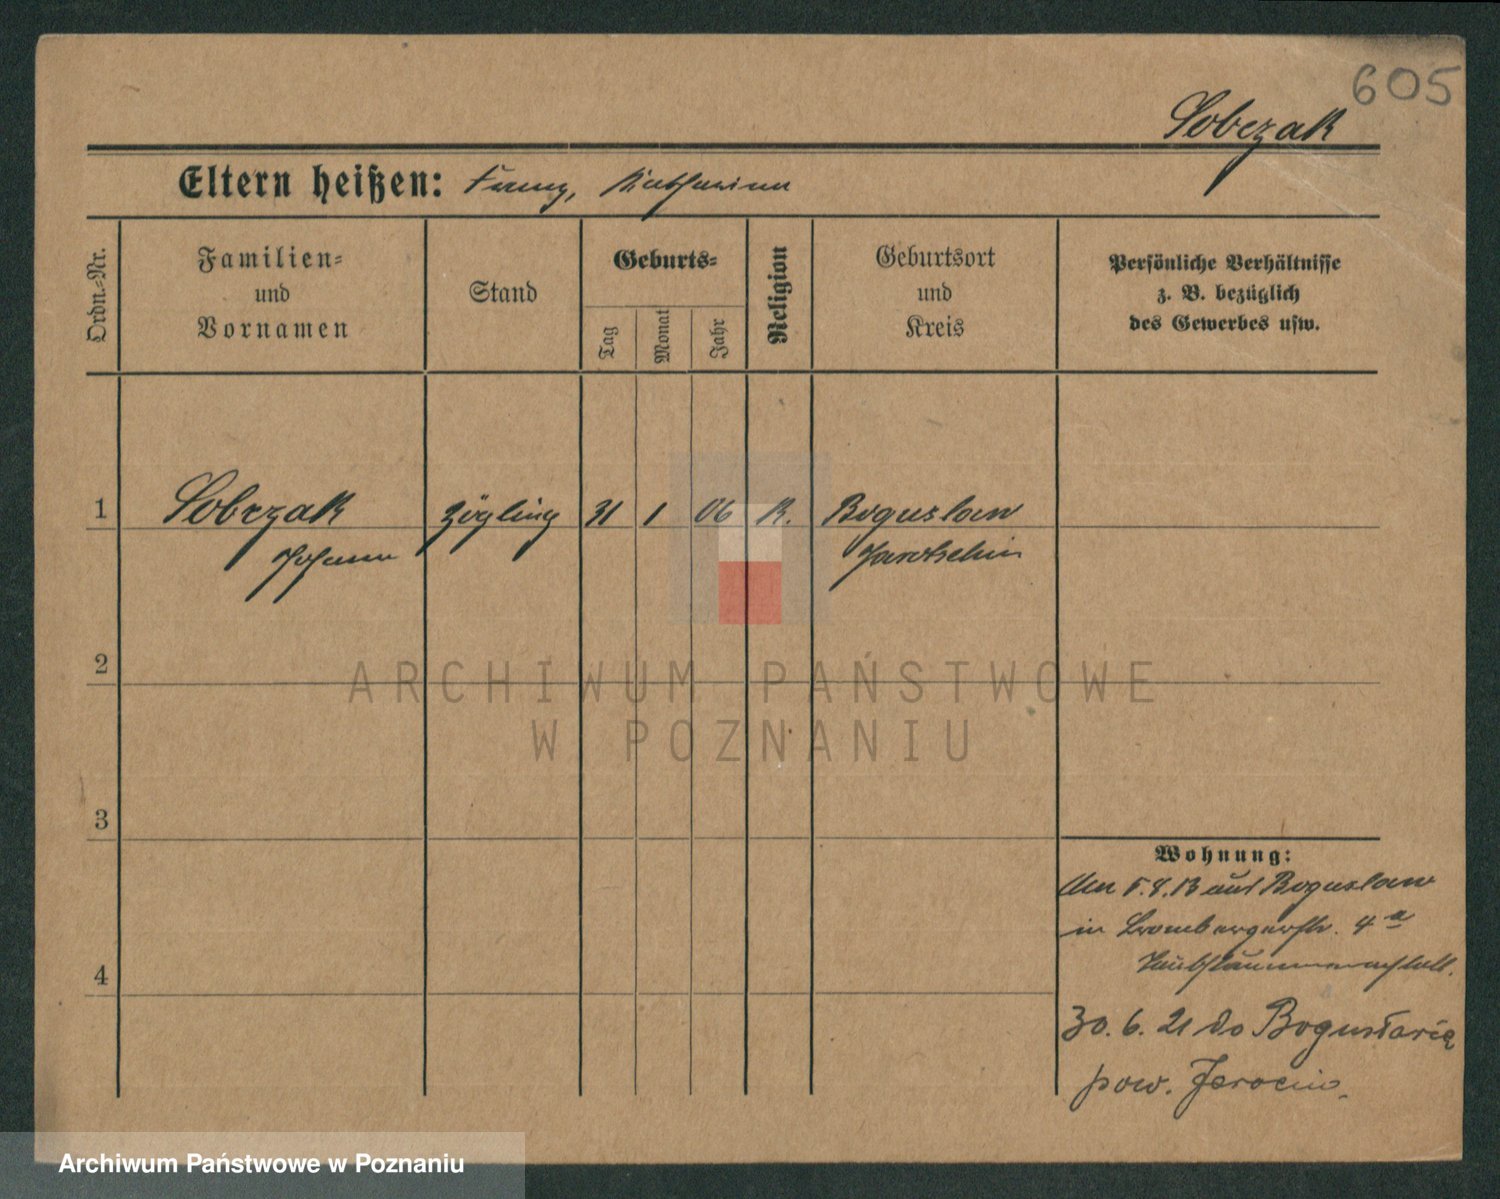 605
Sobczak
Eltern heißen: Franz, Katharina
Ordn.-Nr.
Familien-
und
Vornamen
Stand
Geburts-
Tag
Monat
Jahr
Religion
Geburtsort
und
Kreis
Persönliche Verhältnisse
z. B. bezüglich
des Gewerbes usw.
1 Sobczak Zögling 31 1 06 K. Boguslaw
Johann Jarotschin
2
ARCHIWUM PAŃSTWOWE
W POZNANIU
3
Wohnung:
Am 5.8.13 aus Boguslaw
in Brombergerstr. 4a
Taubstummenanstalt.
4
30. 6. 21 do Bogusławia
pow. Jarocin.
Archiwum Państwowe w Poznaniu